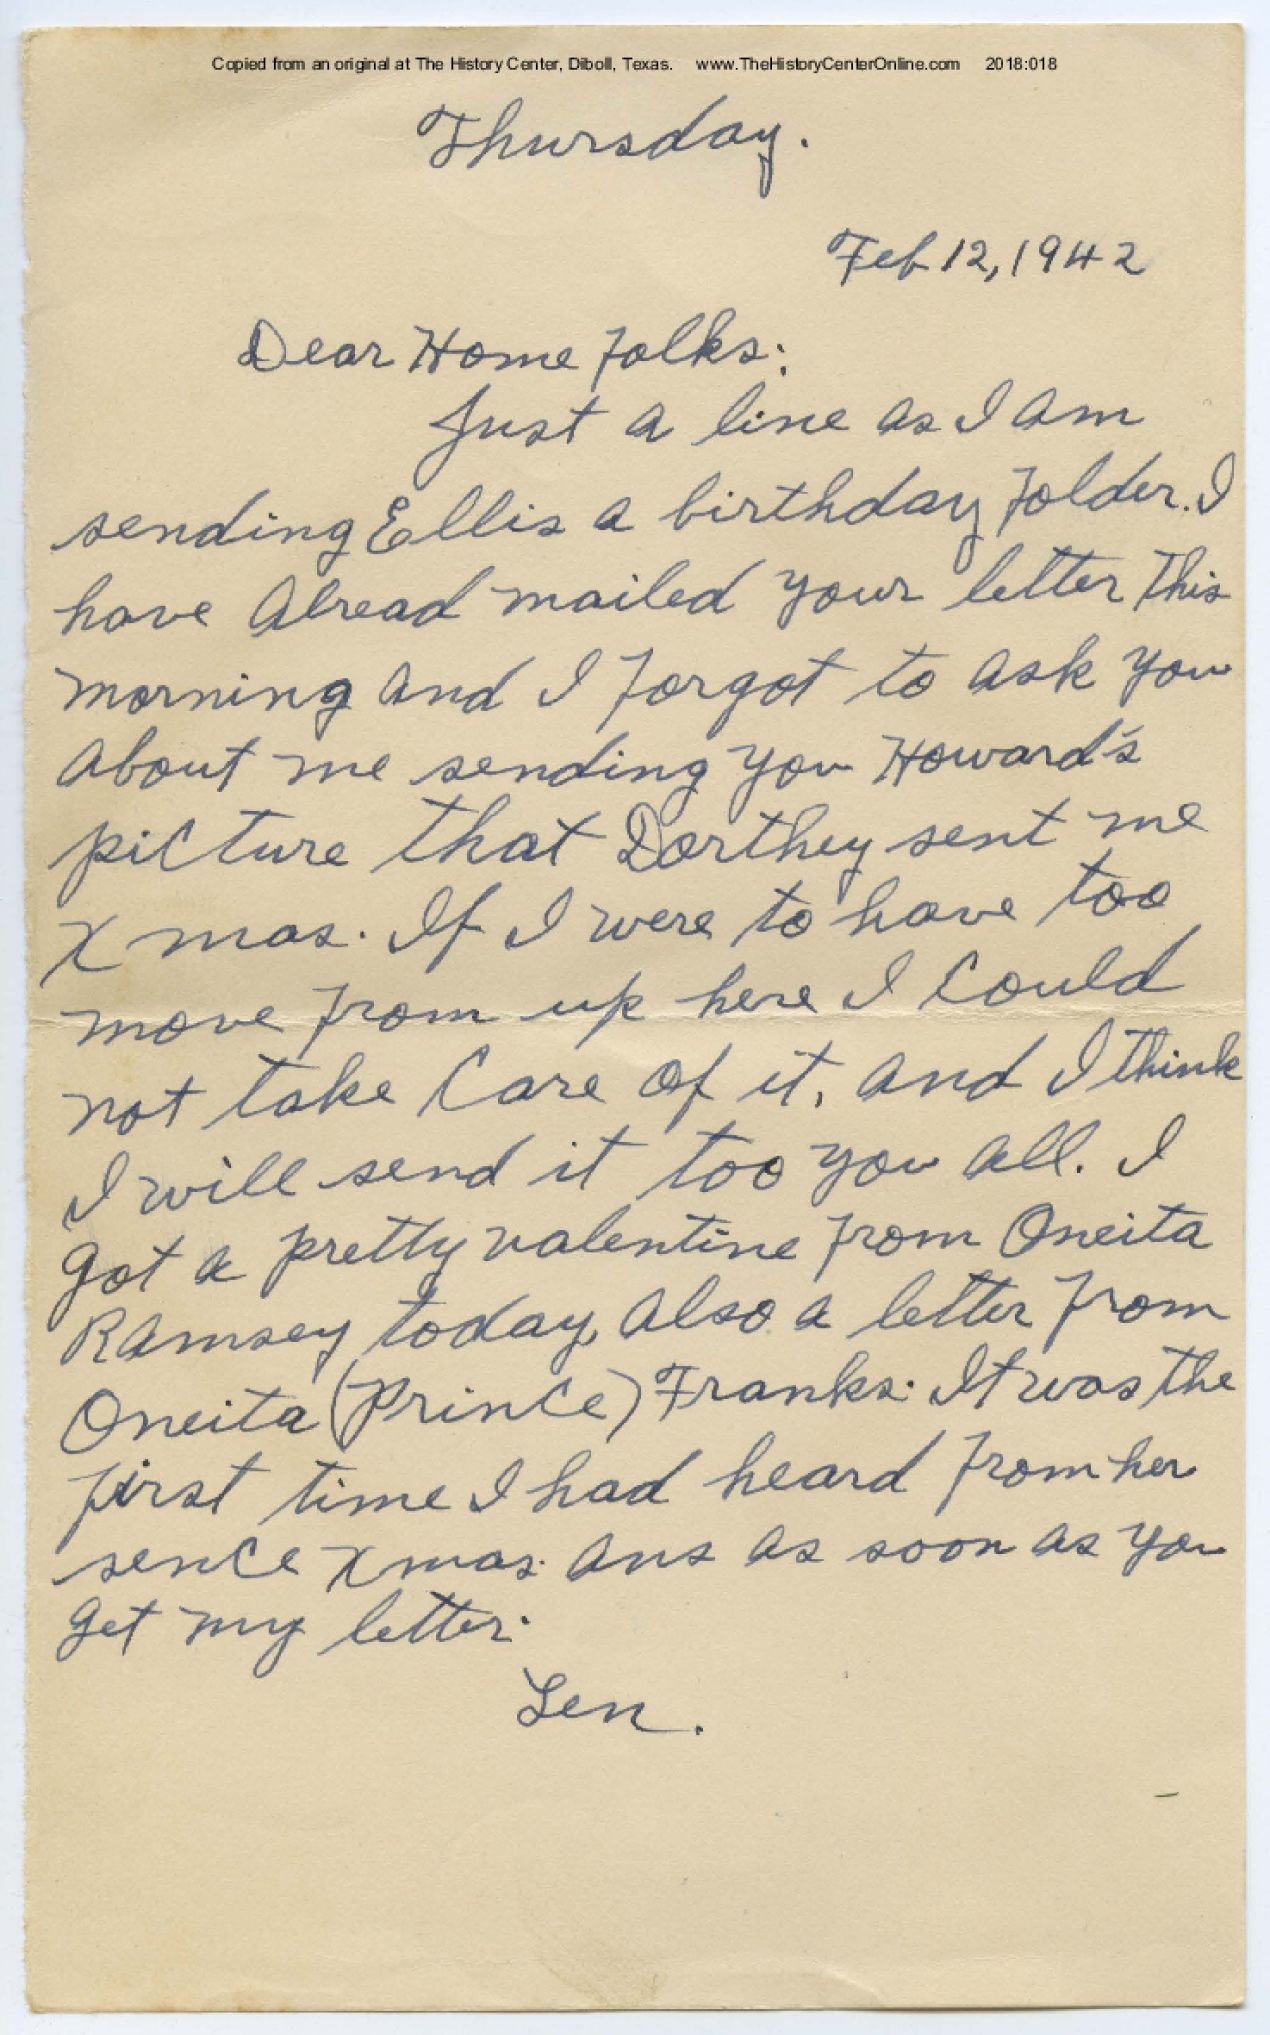 Copied from an original at The History Center, Diboll, Texas. www.TheHistoryCenterOnline.com 2018:018
Thursday.
Feb 12, 1942
Dear Home folks:
Just a line as I am
sending Ellis a birthday folder. I
have alread mailed your letter this
morning and I forgot to ask you
about me sending you Howard's
picture that Dorthey sent me
Xmas. If I were to have too
move from up here I could
not take care of it, and I think
I will send it too you all. I
got a pretty valentine from Oneita
Ramsey today, also a letter from
Oneita (Prince) Franks. It was the
first time I had heard from her
sence Xmas. Ans as soon as you
get my letter.
Len.